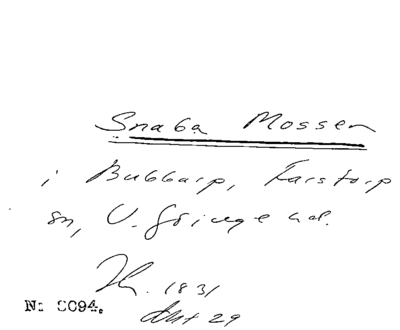 Snaba Mossen
i Bubbarp, Farstorp
sn, V. Göinge hd.
Th. 1831
Akt 29
N: 8094.